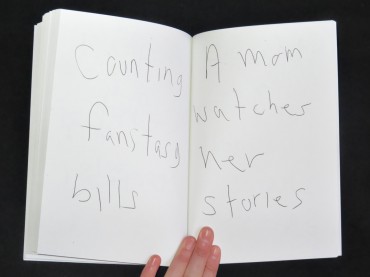 Counting
fanstasy
bills
A mom
watches
her
stories